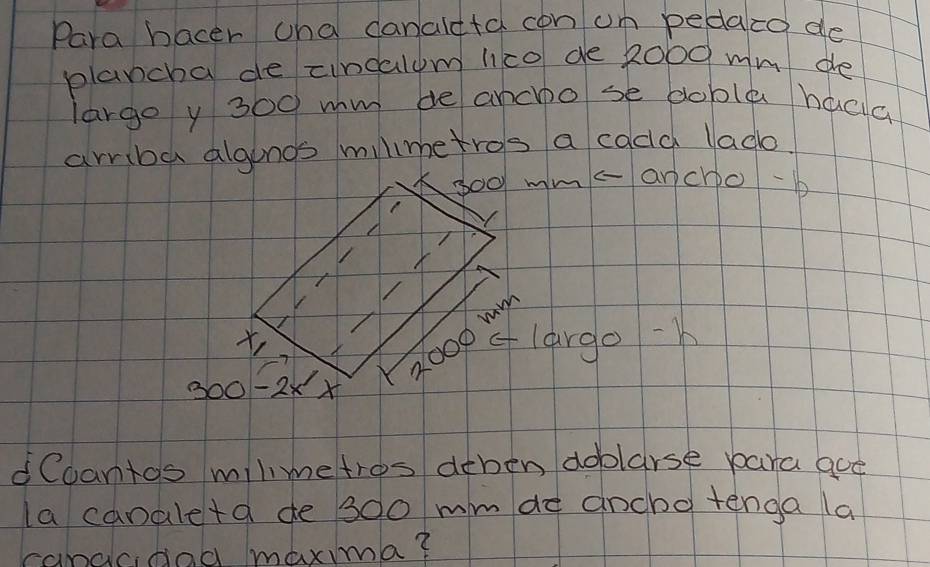 Para hacer una canaleta con un pedazo de
plancha de zincalum liso de 2000 mm de
largo y 300 mm de ancho se dobla hacia
arriba algunos milimetros a cada lado.
300 mm ← ancho - b
x
2000 mm ← largo - h
300 - 2x x
¿Cuantos milimetros deben doblarse para que
la canaleta de 300 mm de ancho tenga la
capacidad maxima?